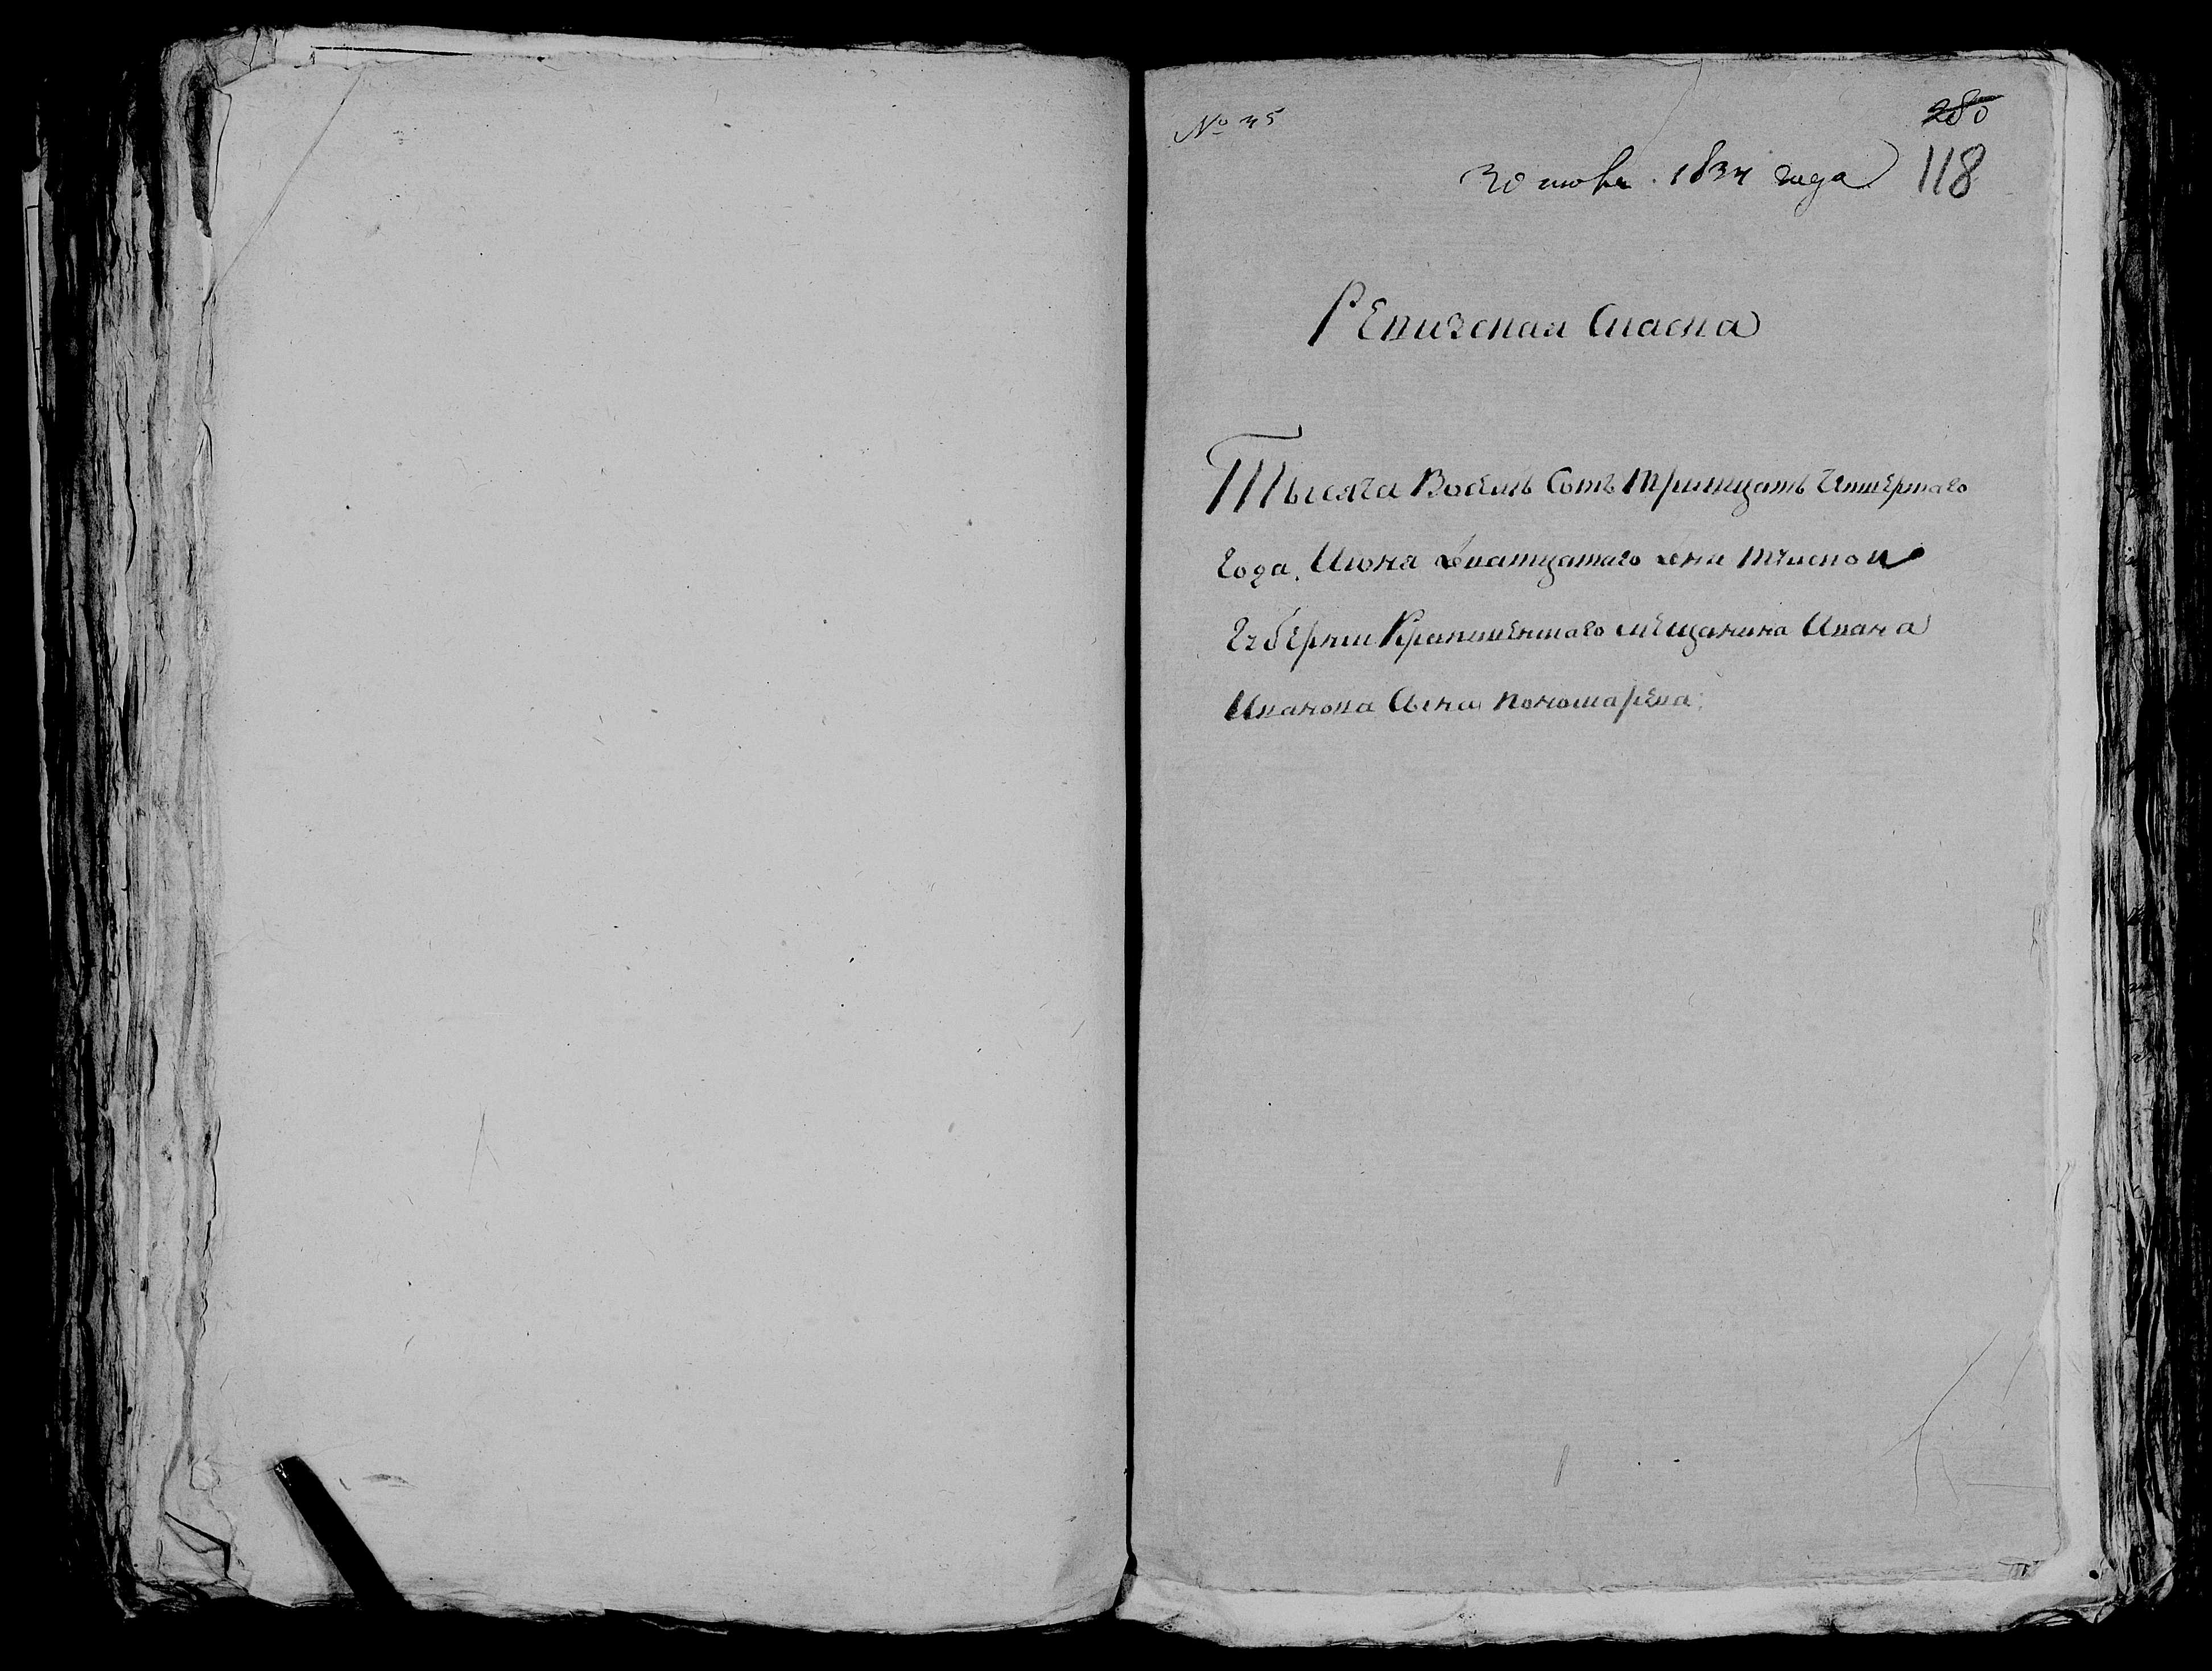 № 45
280
30 июня 1834 года
118
Ревизская Скаска
Тысяча Восемь Сотъ Тритцать Четвертаго
Года, Июня дватцатаго дня Тулской
Губернии Крапивенскаго мещанина Ивана
Иванова Сына Пономарева: